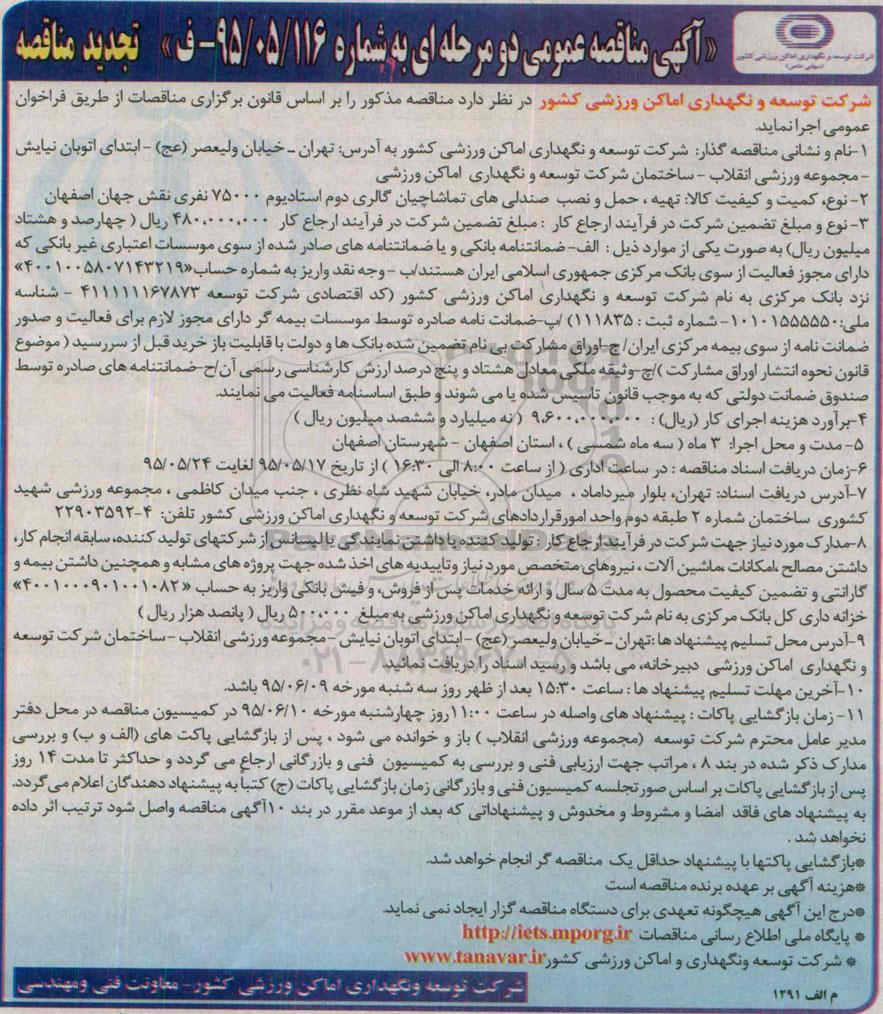 «آگهی مناقصه عمومی دو مرحله ای به شماره ۹۵/۰۵/۱۱۶- ف» تجدید مناقصه
شرکت توسعه و نگهداری اماکن ورزشی کشور
(سهامی خاص)
شرکت توسعه و نگهداری اماکن ورزشی کشور در نظر دارد مناقصه مذکور را بر اساس قانون برگزاری مناقصات از طریق فراخوان
عمومی اجرا نماید.
۱-نام و نشانی مناقصه گذار: شرکت توسعه و نگهداری اماکن ورزشی کشور به آدرس: تهران ـ خیابان ولیعصر (عج) - ابتدای اتوبان نیایش
-مجموعه ورزشی انقلاب - ساختمان شرکت توسعه و نگهداری اماکن ورزشی
۲-نوع، کمیت و کیفیت کالا: تهیه ، حمل و نصب صندلی های تماشاچیان گالری دوم استادیوم ۷۵۰۰۰ نفری نقش جهان اصفهان
۳-نوع و مبلغ تضمین شرکت در فرآیند ارجاع کار : مبلغ تضمین شرکت در فرآیند ارجاع کار ۴۸۰،۰۰۰،۰۰۰ ریال ( چهارصد و هشتاد
میلیون ریال) به صورت یکی از موارد ذیل : الف- ضمانتنامه بانکی و یا ضمانتنامه های صادر شده از سوی موسسات اعتباری غیر بانکی که
دارای مجوز فعالیت از سوی بانک مرکزی جمهوری اسلامی ایران هستند/ب - وجه نقد واریز به شماره حساب«۴۰۰۱۰۰۵۸۰۷۱۴۳۲۱۹»
نزد بانک مرکزی به نام شرکت توسعه و نگهداری اماکن ورزشی کشور (کد اقتصادی شرکت توسعه ۴۱۱۱۱۱۱۶۷۸۷۳ - شناسه
ملی:۱۰۱۰۱۵۵۵۵۵۰- شماره ثبت : ۱۱۱۸۳۵) /پ-ضمانت نامه صادره توسط موسسات بیمه گر دارای مجوز لازم برای فعالیت و صدور
ضمانت نامه از سوی بیمه مرکزی ایران/ج-اوراق مشارکت بی نام تضمین شده بانک ها و دولت با قابلیت باز خرید قبل از سررسید ( موضوع
قانون نحوه انتشار اوراق مشارکت )/چ-وثیقه ملکی معادل هشتاد و پنج درصد ارزش کارشناسی رسمی آن/ح-ضمانتنامه های صادره توسط
صندوق ضمانت دولتی که به موجب قانون تاسیس شده یا می شوند و طبق اساسنامه فعالیت می نمایند.
۴-برآورد هزینه اجرای کار (ریال) : ۹،۶۰۰،۰۰۰،۰۰۰ ( نه میلیارد و ششصد میلیون ریال )
۵- مدت و محل اجرا: ۳ ماه ( سه ماه شمسی ) ، استان اصفهان - شهرستان اصفهان
۶-زمان دریافت اسناد مناقصه : در ساعت اداری ( از ساعت ۸:۰۰ الی ۱۶:۳۰ ) از تاریخ ۹۵/۰۵/۱۷ لغایت ۹۵/۰۵/۲۴
۷-آدرس دریافت اسناد: تهران، بلوار میرداماد ، میدان مادر، خیابان شهید شاه نظری ، جنب میدان کاظمی ، مجموعه ورزشی شهید
کشوری ساختمان شماره ۲ طبقه دوم واحد امورقراردادهای شرکت توسعه و نگهداری اماکن ورزشی کشور تلفن: ۴-۲۲۹۰۳۵۹۲
۸-مدارک مورد نیاز جهت شرکت در فرآیند ارجاع کار : تولید کننده یا داشتن نمایندگی یا لیسانس از شرکتهای تولید کننده، سابقه انجام کار،
داشتن مصالح ،امکانات ،ماشین آلات ، نیروهای متخصص مورد نیاز وتاییدیه های اخذ شده جهت پروژه های مشابه و همچنین داشتن بیمه و
گارانتی و تضمین کیفیت محصول به مدت ۵ سال و ارائه خدمات پس از فروش، و فیش بانکی واریز به حساب «۴۰۰۱۰۰۰۹۰۱۰۰۱۰۸۲»
خزانه داری کل بانک مرکزی به نام شرکت توسعه و نگهداری اماکن ورزشی به مبلغ ۵۰۰،۰۰۰ ریال ( پانصد هزار ریال )
۹-آدرس محل تسلیم پیشنهاد ها :تهران ـ خیابان ولیعصر (عج) - ابتدای اتوبان نیایش -مجموعه ورزشی انقلاب -ساختمان شرکت توسعه
و نگهداری اماکن ورزشی دبیرخانه، می باشد و رسید اسناد را دریافت نمائید.
۱۰-آخرین مهلت تسلیم پیشنهاد ها : ساعت ۱۵:۳۰ بعد از ظهر روز سه شنبه مورخه ۹۵/۰۶/۰۹ باشد.
۱۱- زمان بازگشایی پاکات : پیشنهاد های واصله در ساعت ۱۱:۰۰روز چهارشنبه مورخه ۹۵/۰۶/۱۰ در کمیسیون مناقصه در محل دفتر
مدیر عامل محترم شرکت توسعه (مجموعه ورزشی انقلاب ) باز و خوانده می شود ، پس از بازگشایی پاکت های (الف و ب) و بررسی
مدارک ذکر شده در بند ۸ ، مراتب جهت ارزیابی فنی و بررسی به کمیسیون فنی و بازرگانی ارجاع می گردد و حداکثر تا مدت ۱۴ روز
پس از بازگشایی پاکات بر اساس صورتجلسه کمیسیون فنی و بازرگانی زمان بازگشایی پاکات (ج) کتباً به پیشنهاد دهندگان اعلام می گردد.
به پیشنهاد های فاقد امضا و مشروط و مخدوش و پیشنهاداتی که بعد از موعد مقرر در بند ۱۰آگهی مناقصه واصل شود ترتیب اثر داده
نخواهد شد .
*بازگشایی پاکتها با پیشنهاد حداقل یک مناقصه گر انجام خواهد شد.
*هزینه آگهی بر عهده برنده مناقصه است
*درج این آگهی هیچگونه تعهدی برای دستگاه مناقصه گزار ایجاد نمی نماید.
* پایگاه ملی اطلاع رسانی مناقصات http://iets.mporg.ir
* شرکت توسعه ونگهداری و اماکن ورزشی کشور www.tanavar.ir
شرکت توسعه ونگهداری اماکن ورزشی کشور- معاونت فنی ومهندسی
م الف ۱۲۹۱